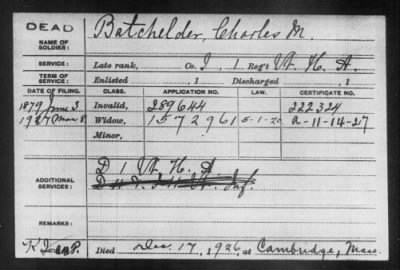 DEAD
NAME OF SOLDIER: Batchelder, Charles M.
SERVICE: Late rank, Co. I, 1 Reg't Vt. H. A.
TERM OF SERVICE: Enlisted , 1 Discharged , 1
DATE OF FILING. CLASS. APPLICATION NO. LAW. CERTIFICATE NO.
1879 June 3 Invalid, 289644 222324
1927 Mar 8 Widow, 1572961 5-1-20 a-11-14-27
Minor,
ADDITIONAL SERVICES: D 1 Vt. H. A
Vt. Inf.
REMARKS:
Died Dec. 17, 1926, at Cambridge, Mass.